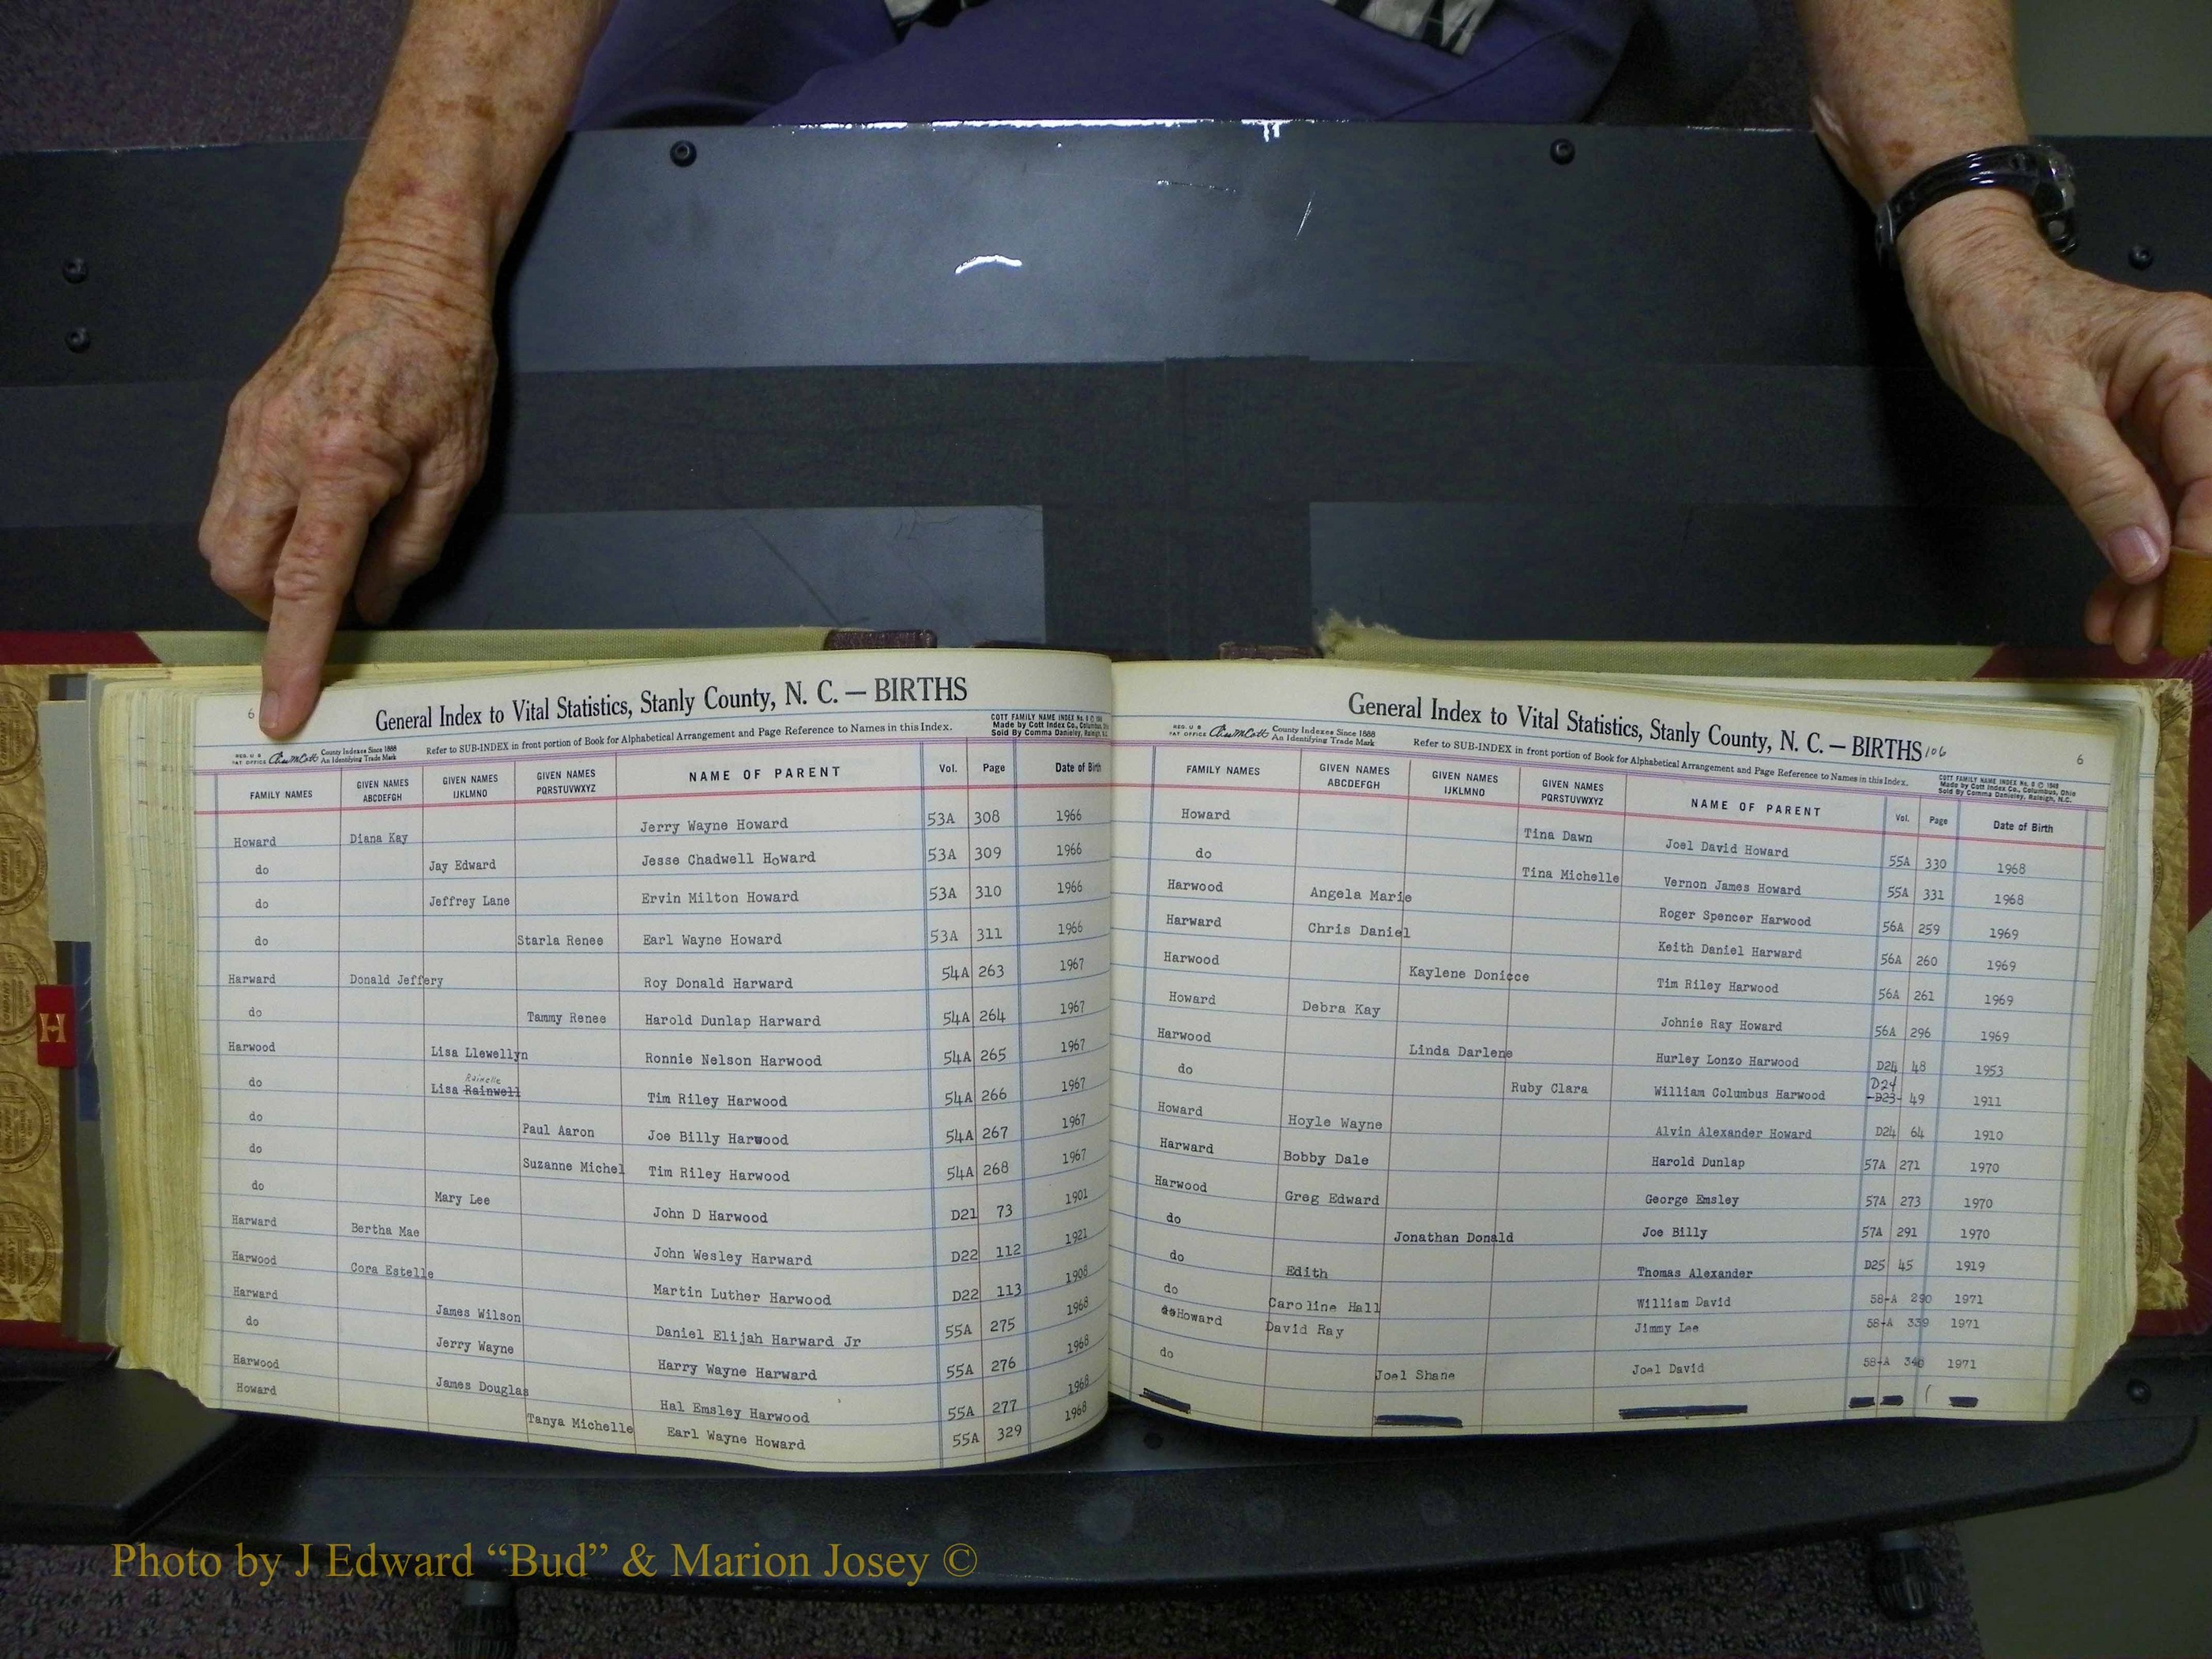 6
General Index to Vital Statistics, Stanly County, N. C. — BIRTHS
County Indexes Since 1888
An Identifying Trade Mark
Refer to SUB-INDEX in front portion of Book for Alphabetical Arrangement and Page Reference to Names in this Index.
Made by Cott Index Co., Columbus,
Sold By Comma Danieley, Raleigh, N.C.
FAMILY NAMES GIVEN NAMES ABCDEFGH GIVEN NAMES IJKLMNO GIVEN NAMES PQRSTUVWXYZ NAME OF PARENT Vol. Page Date of Birth
Howard Diana Kay Jerry Wayne Howard 53A 308 1966
do Jay Edward Jesse Chadwell Howard 53A 309 1966
do Jeffrey Lane Ervin Milton Howard 53A 310 1966
do Starla Renee Earl Wayne Howard 53A 311 1966
Harward Donald Jeffery Roy Donald Harward 54A 263 1967
do Tammy Renee Harold Dunlap Harward 54A 264 1967
Harwood Lisa Llewellyn Ronnie Nelson Harwood 54A 265 1967
do Lisa Rainwell Rainelle Tim Riley Harwood 54A 266 1967
do Paul Aaron Joe Billy Harwood 54A 267 1967
do Suzanne Michel Tim Riley Harwood 54A 268 1967
do Mary Lee John D Harwood D21 73 1901
Harward Bertha Mae John Wesley Harward D22 112 1921
Harwood Cora Estelle Martin Luther Harwood D22 113 1908
Harward James Wilson Daniel Elijah Harward Jr 55A 275 1968
do Jerry Wayne Harry Wayne Harward 55A 276 1968
Harwood James Douglas Hal Emsley Harwood 55A 277 1968
Howard Tanya Michelle Earl Wayne Howard 55A 329 1968
General Index to Vital Statistics, Stanly County, N. C. — BIRTHS 106
6
County Indexes Since 1888
An Identifying Trade Mark
Refer to SUB-INDEX in front portion of Book for Alphabetical Arrangement and Page Reference to Names in this Index.
Made by Cott Index Co., Columbus, Ohio
Sold By Comma Danieley, Raleigh, N.C.
FAMILY NAMES GIVEN NAMES ABCDEFGH GIVEN NAMES IJKLMNO GIVEN NAMES PQRSTUVWXYZ NAME OF PARENT Vol. Page Date of Birth
Howard Tina Dawn Joel David Howard 55A 330 1968
do Tina Michelle Vernon James Howard 55A 331 1968
Harwood Angela Marie Roger Spencer Harwood 56A 259 1969
Harward Chris Daniel Keith Daniel Harward 56A 260 1969
Harwood Kaylene Donicce Tim Riley Harwood 56A 261 1969
Howard Debra Kay Johnie Ray Howard 56A 296 1969
Harwood Linda Darlene Hurley Lonzo Harwood D24 48 1953
do Ruby Clara William Columbus Harwood D24 D23 49 1911
Howard Hoyle Wayne Alvin Alexander Howard D24 64 1910
Harward Bobby Dale Harold Dunlap 57A 271 1970
Harwood Greg Edward George Emsley 57A 273 1970
do Jonathan Donald Joe Billy 57A 291 1970
do Edith Thomas Alexander D25 45 1919
do Caroline Hall William David 58-A 290 1971
do Howard David Ray Jimmy Lee 58-A 339 1971
do Joel Shane Joel David 58-A 340 1971
H
Photo by J Edward “Bud” & Marion Josey ©